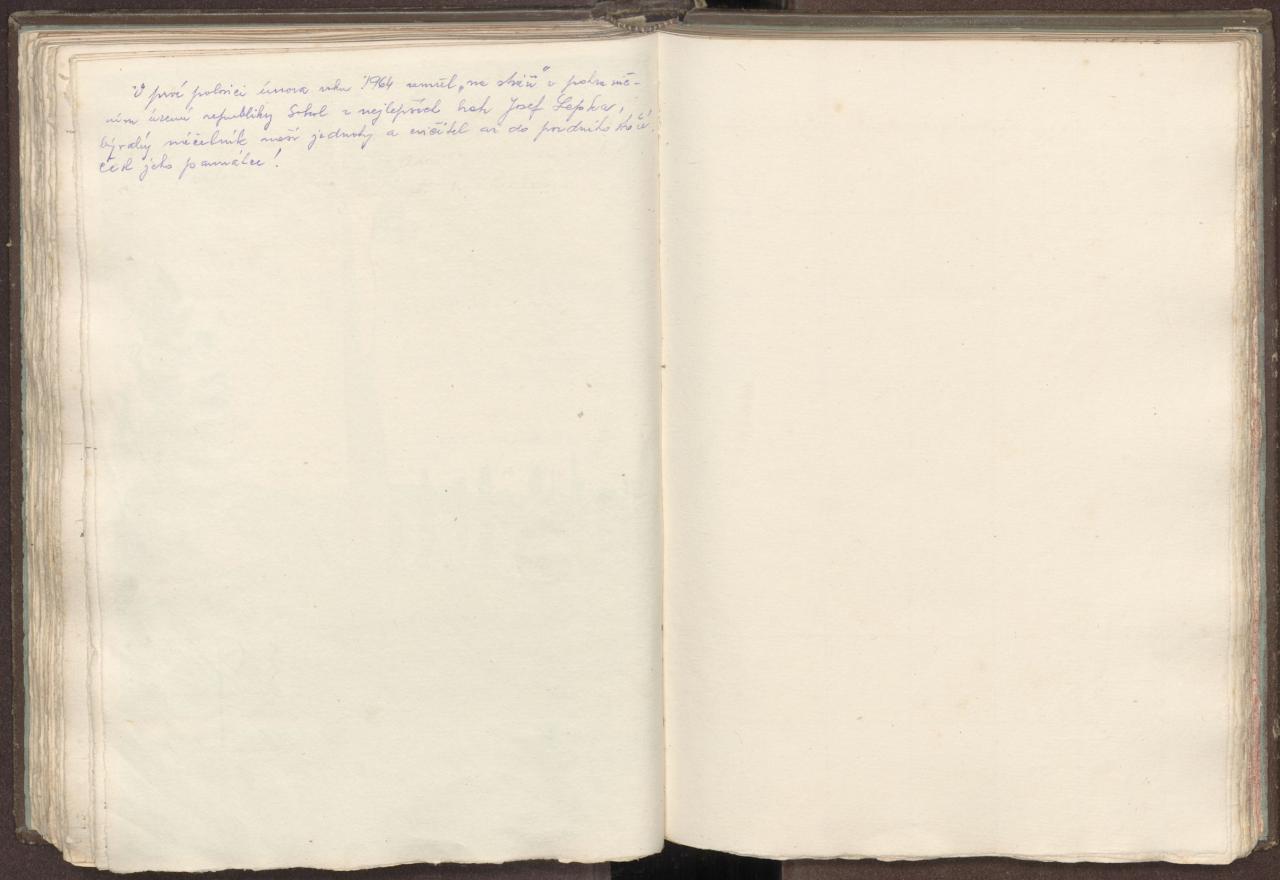 V prvé polovici února roku 1964 zemřel „na stráži" v pohranič-
ním území republiky Sokol z nejlepších brat Josef Lepka,
bývalý náčelník naší jednoty a cvičitel až do pozdního stáří.
Čest jeho památce!